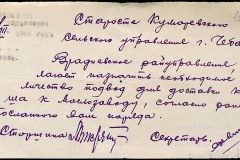 Староста Кумаревского
сельского управление г. Чеба
Врадиевское райуправление
лагает назначить необходимое
личество подвод для доставки к
ша к маслозаводу, согласно ра
сланного вам наряда.
Секретарь